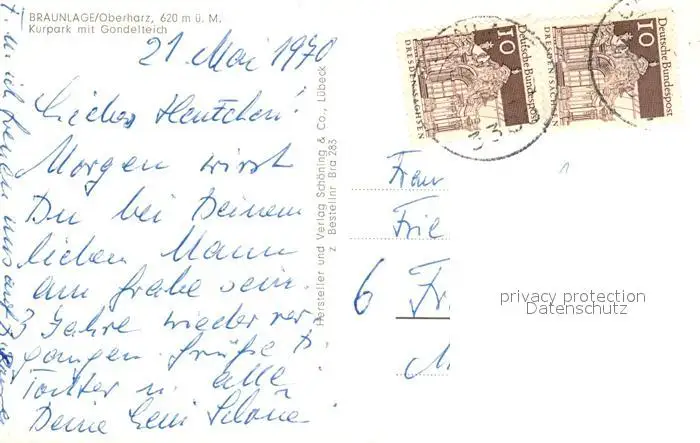 BRAUNLAGE/Oberharz, 620 m ü. M.
Kurpark mit Gondelteich
21 Mai 1970
Liebes Hentchen!
Morgen wirst
Du bei Deinem
lieben Mann
am Grabe sein.
3 Jahre wieder ver-
gangen. Grüße D.
Tochter u. alle.
Deine
Hersteller und Verlag Schöning & Co., Lübeck
Z Bestellnr Bra 283
10
Deutsche Bundespost
DRESDEN/SACHSEN
10
Deutsche Bundespost
DRESDEN/SACHSEN
Frau
Frie
6 Fr
M
privacy protection
Datenschutz